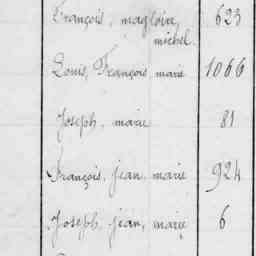 François, magloire, 623
michel
Louis, François marie 1066
Joseph, marie 81
François, jean, marie 924
Joseph, jean, marie 6